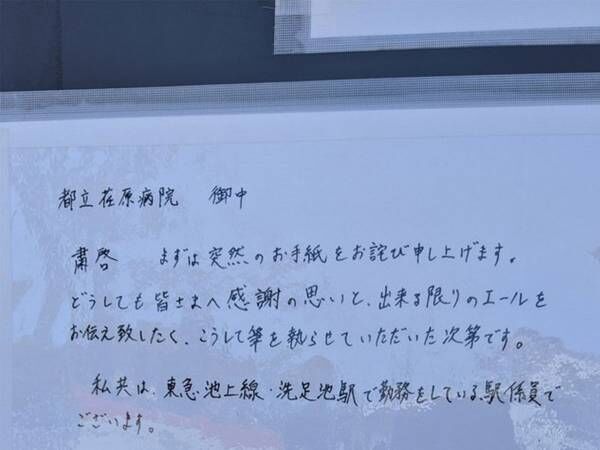 都立荏原病院 御中
肅啓 まずは突然のお手紙をお詫び申し上げます。
どうしても皆さまへ感謝の思いと、出来る限りのエールを
お伝え致したく、こうして筆を執らせていただいた次第です。
私共は、東急池上線・洗足池駅で勤務をしている駅係員で
ございます。